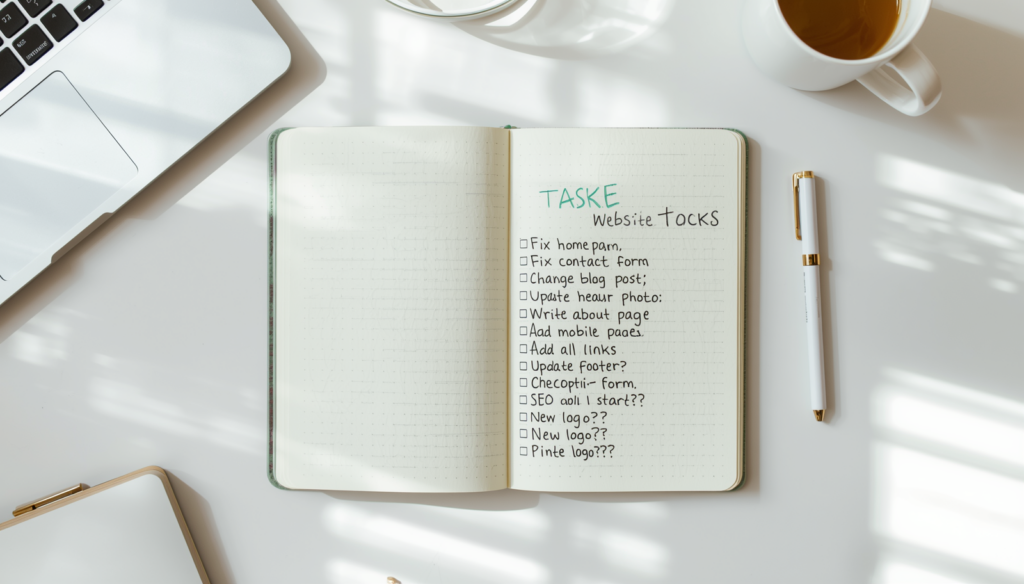 TASKE
Website TOCKS
☐ Fix home parn.
☐ Fix contact form
☐ Change blog post;
☐ Update heaur photo:
☐ Write about page
☐ Aad mobile paoes.
☐ Add all links
☐ Update footer?
☐ Checoptii- form.
☐ SEO aoli I start??
☐ New logo??
☐ New logo??
☐ Pinte logo???